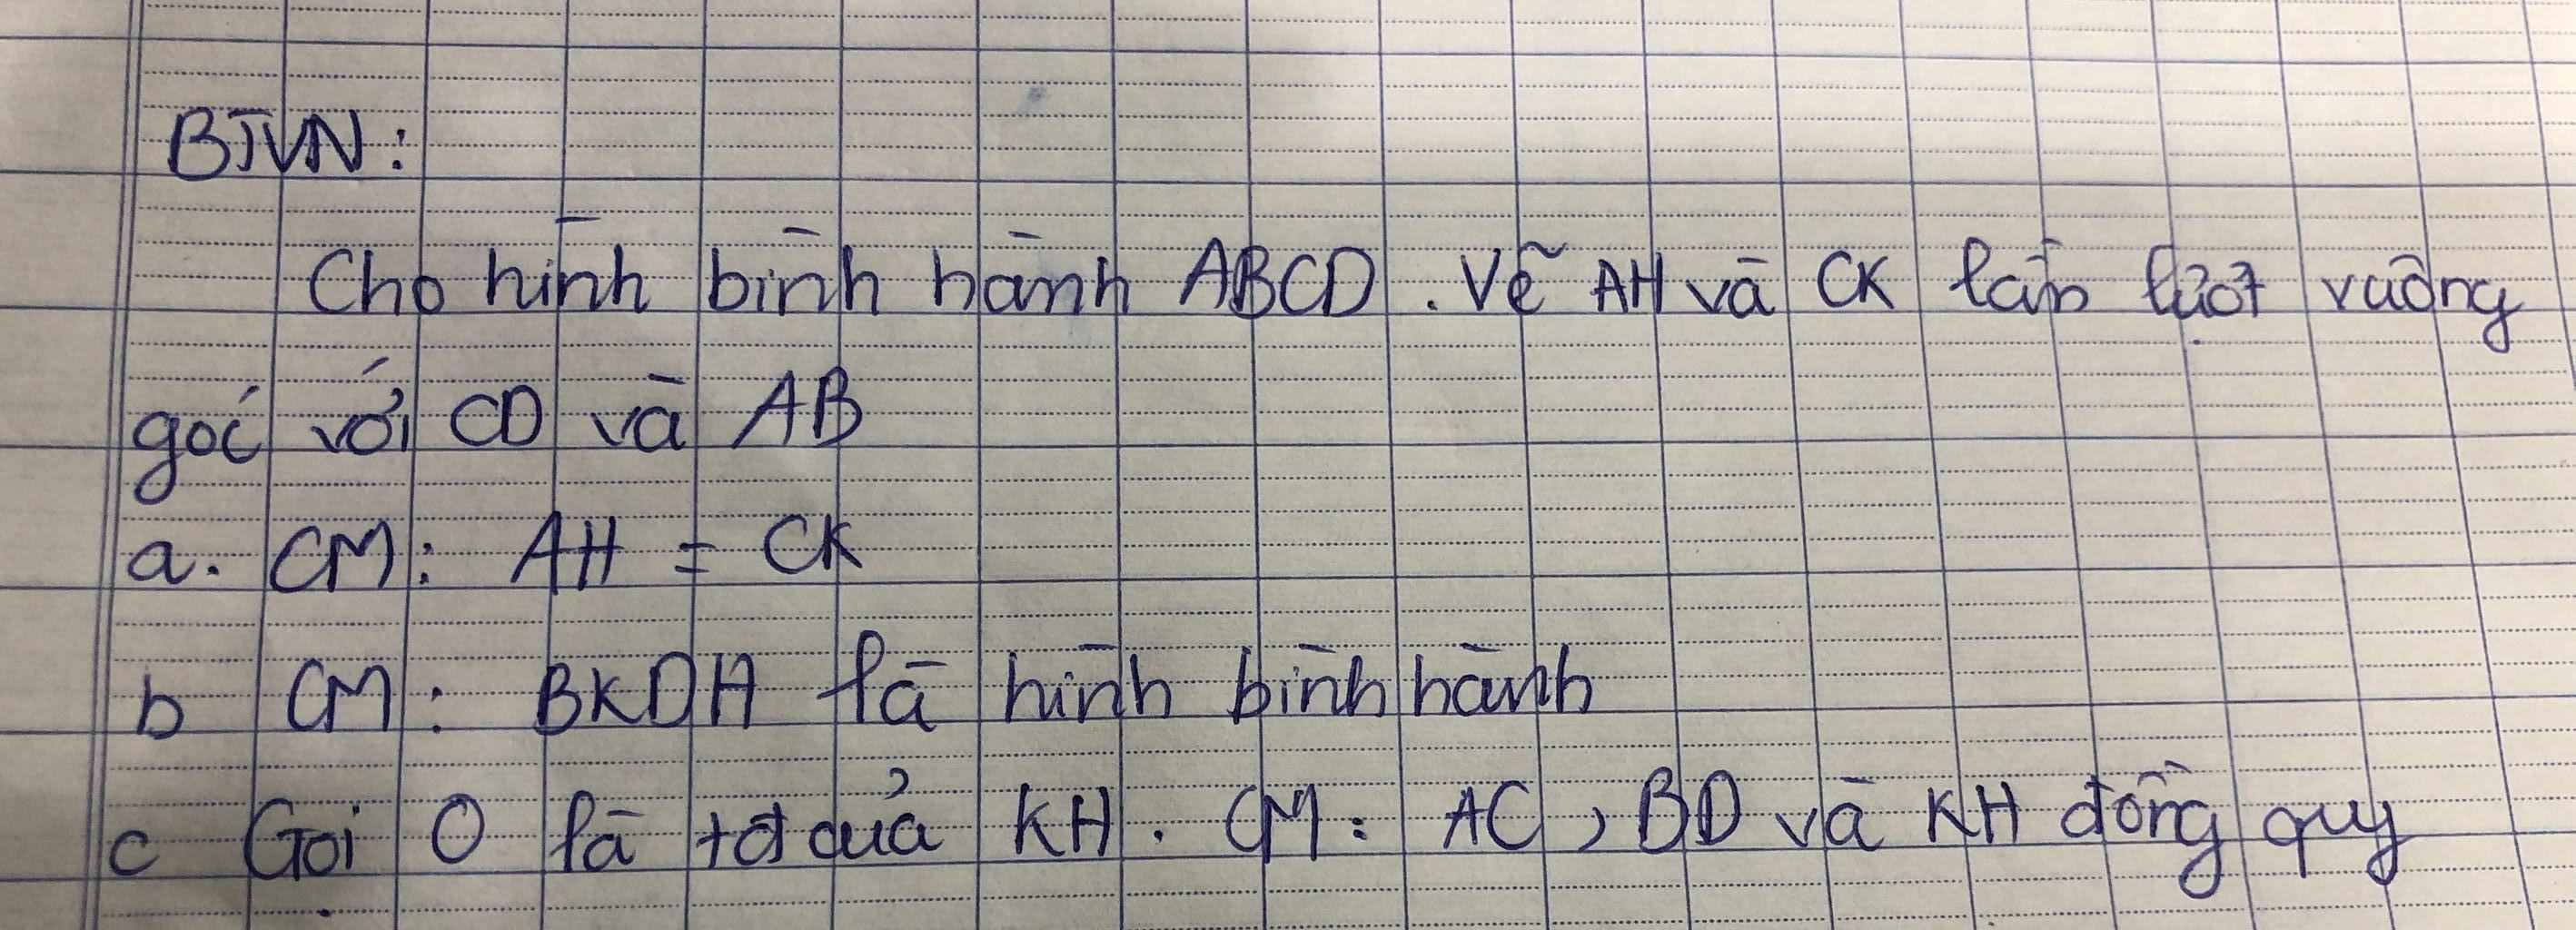 BTVN:
Cho hình bình hành ABCD. Vẽ AH và CK lần lượt vuông
góc với CD và AB
a. CM: AH = CK
b CM: BKDH là hình bình hành
c Gọi O là tđ của KH. CM: AC, BD và KH đồng quy